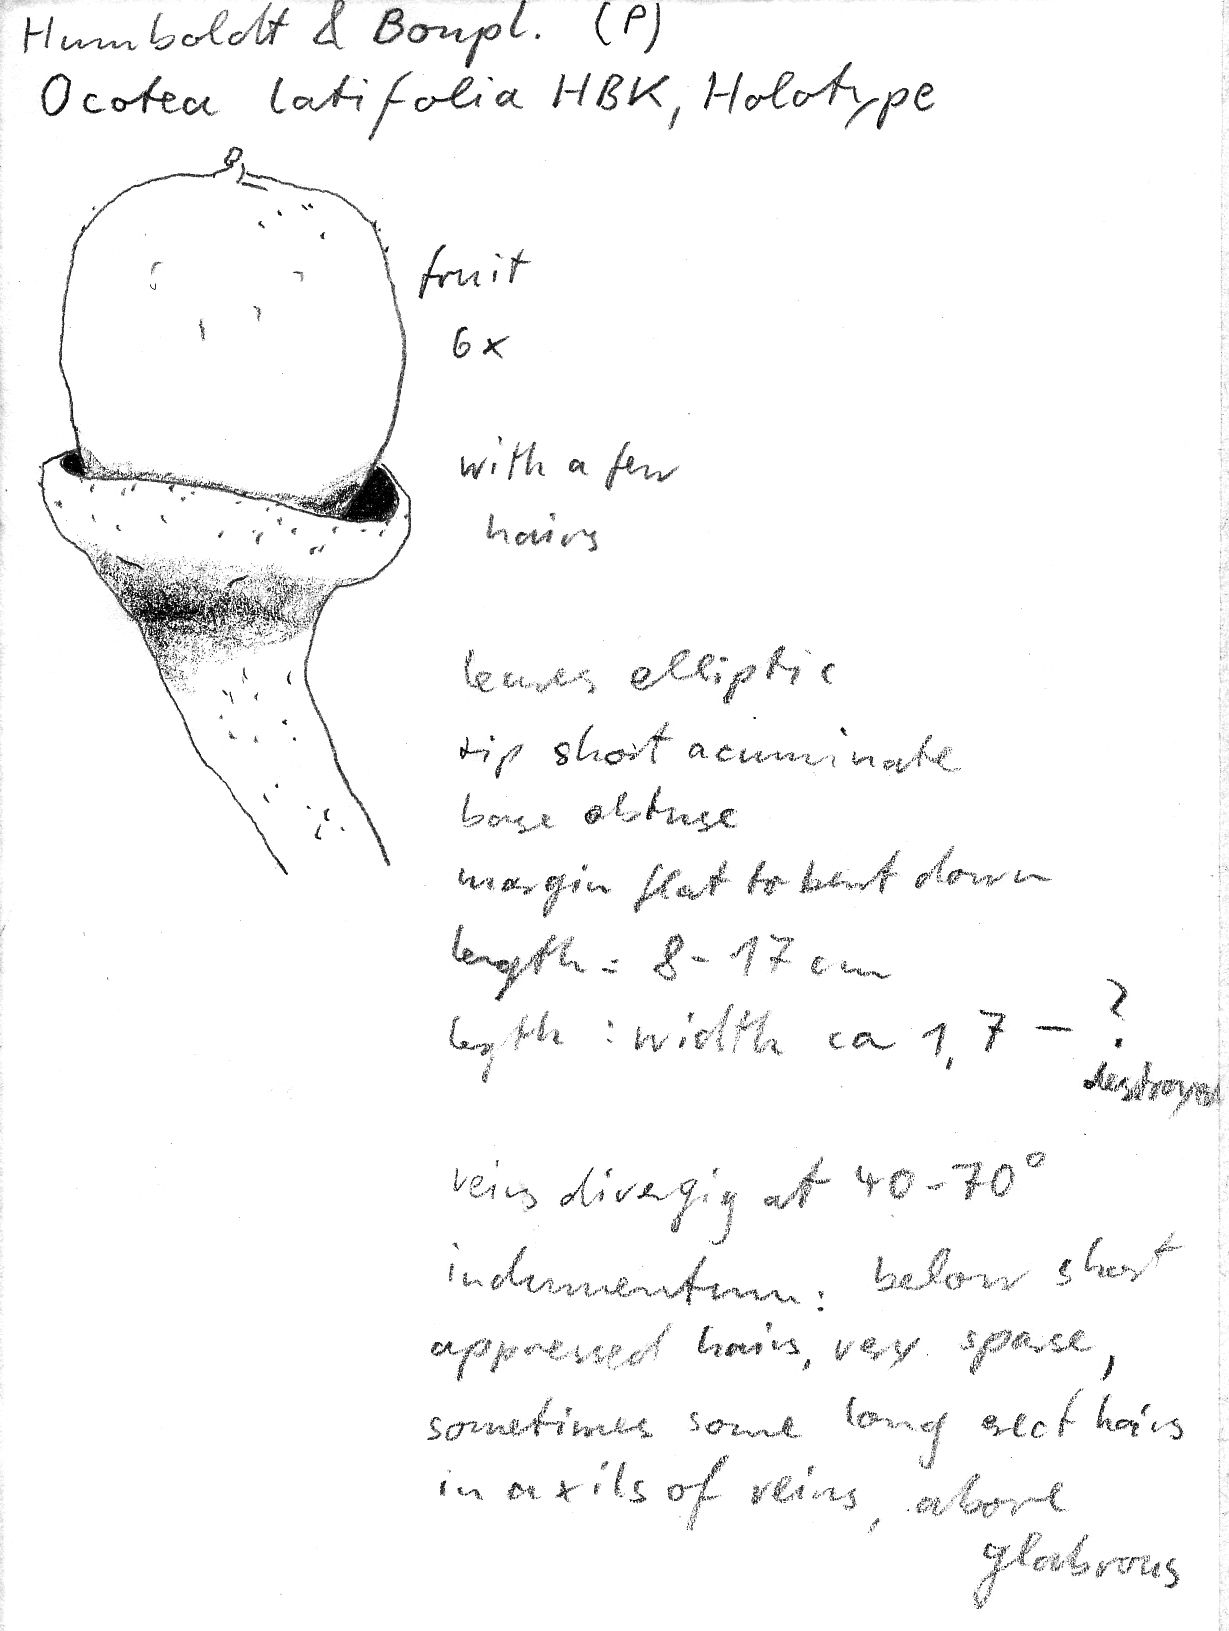 Humboldt & Bonpl. (P)
Ocotea latifolia HBK, Holotype
fruit
6x
with a few
hairs
leaves elliptic
tip short acuminate
base obtuse
margin flat to bent down
length = 8-17 cm
legth : width ca 1,7 - ?
destroyed
veins divergig at 40-70°
indumentum: below short
appressed hairs, very sparse,
sometimes some long erect hairs
in axils of veins, above
glabrous